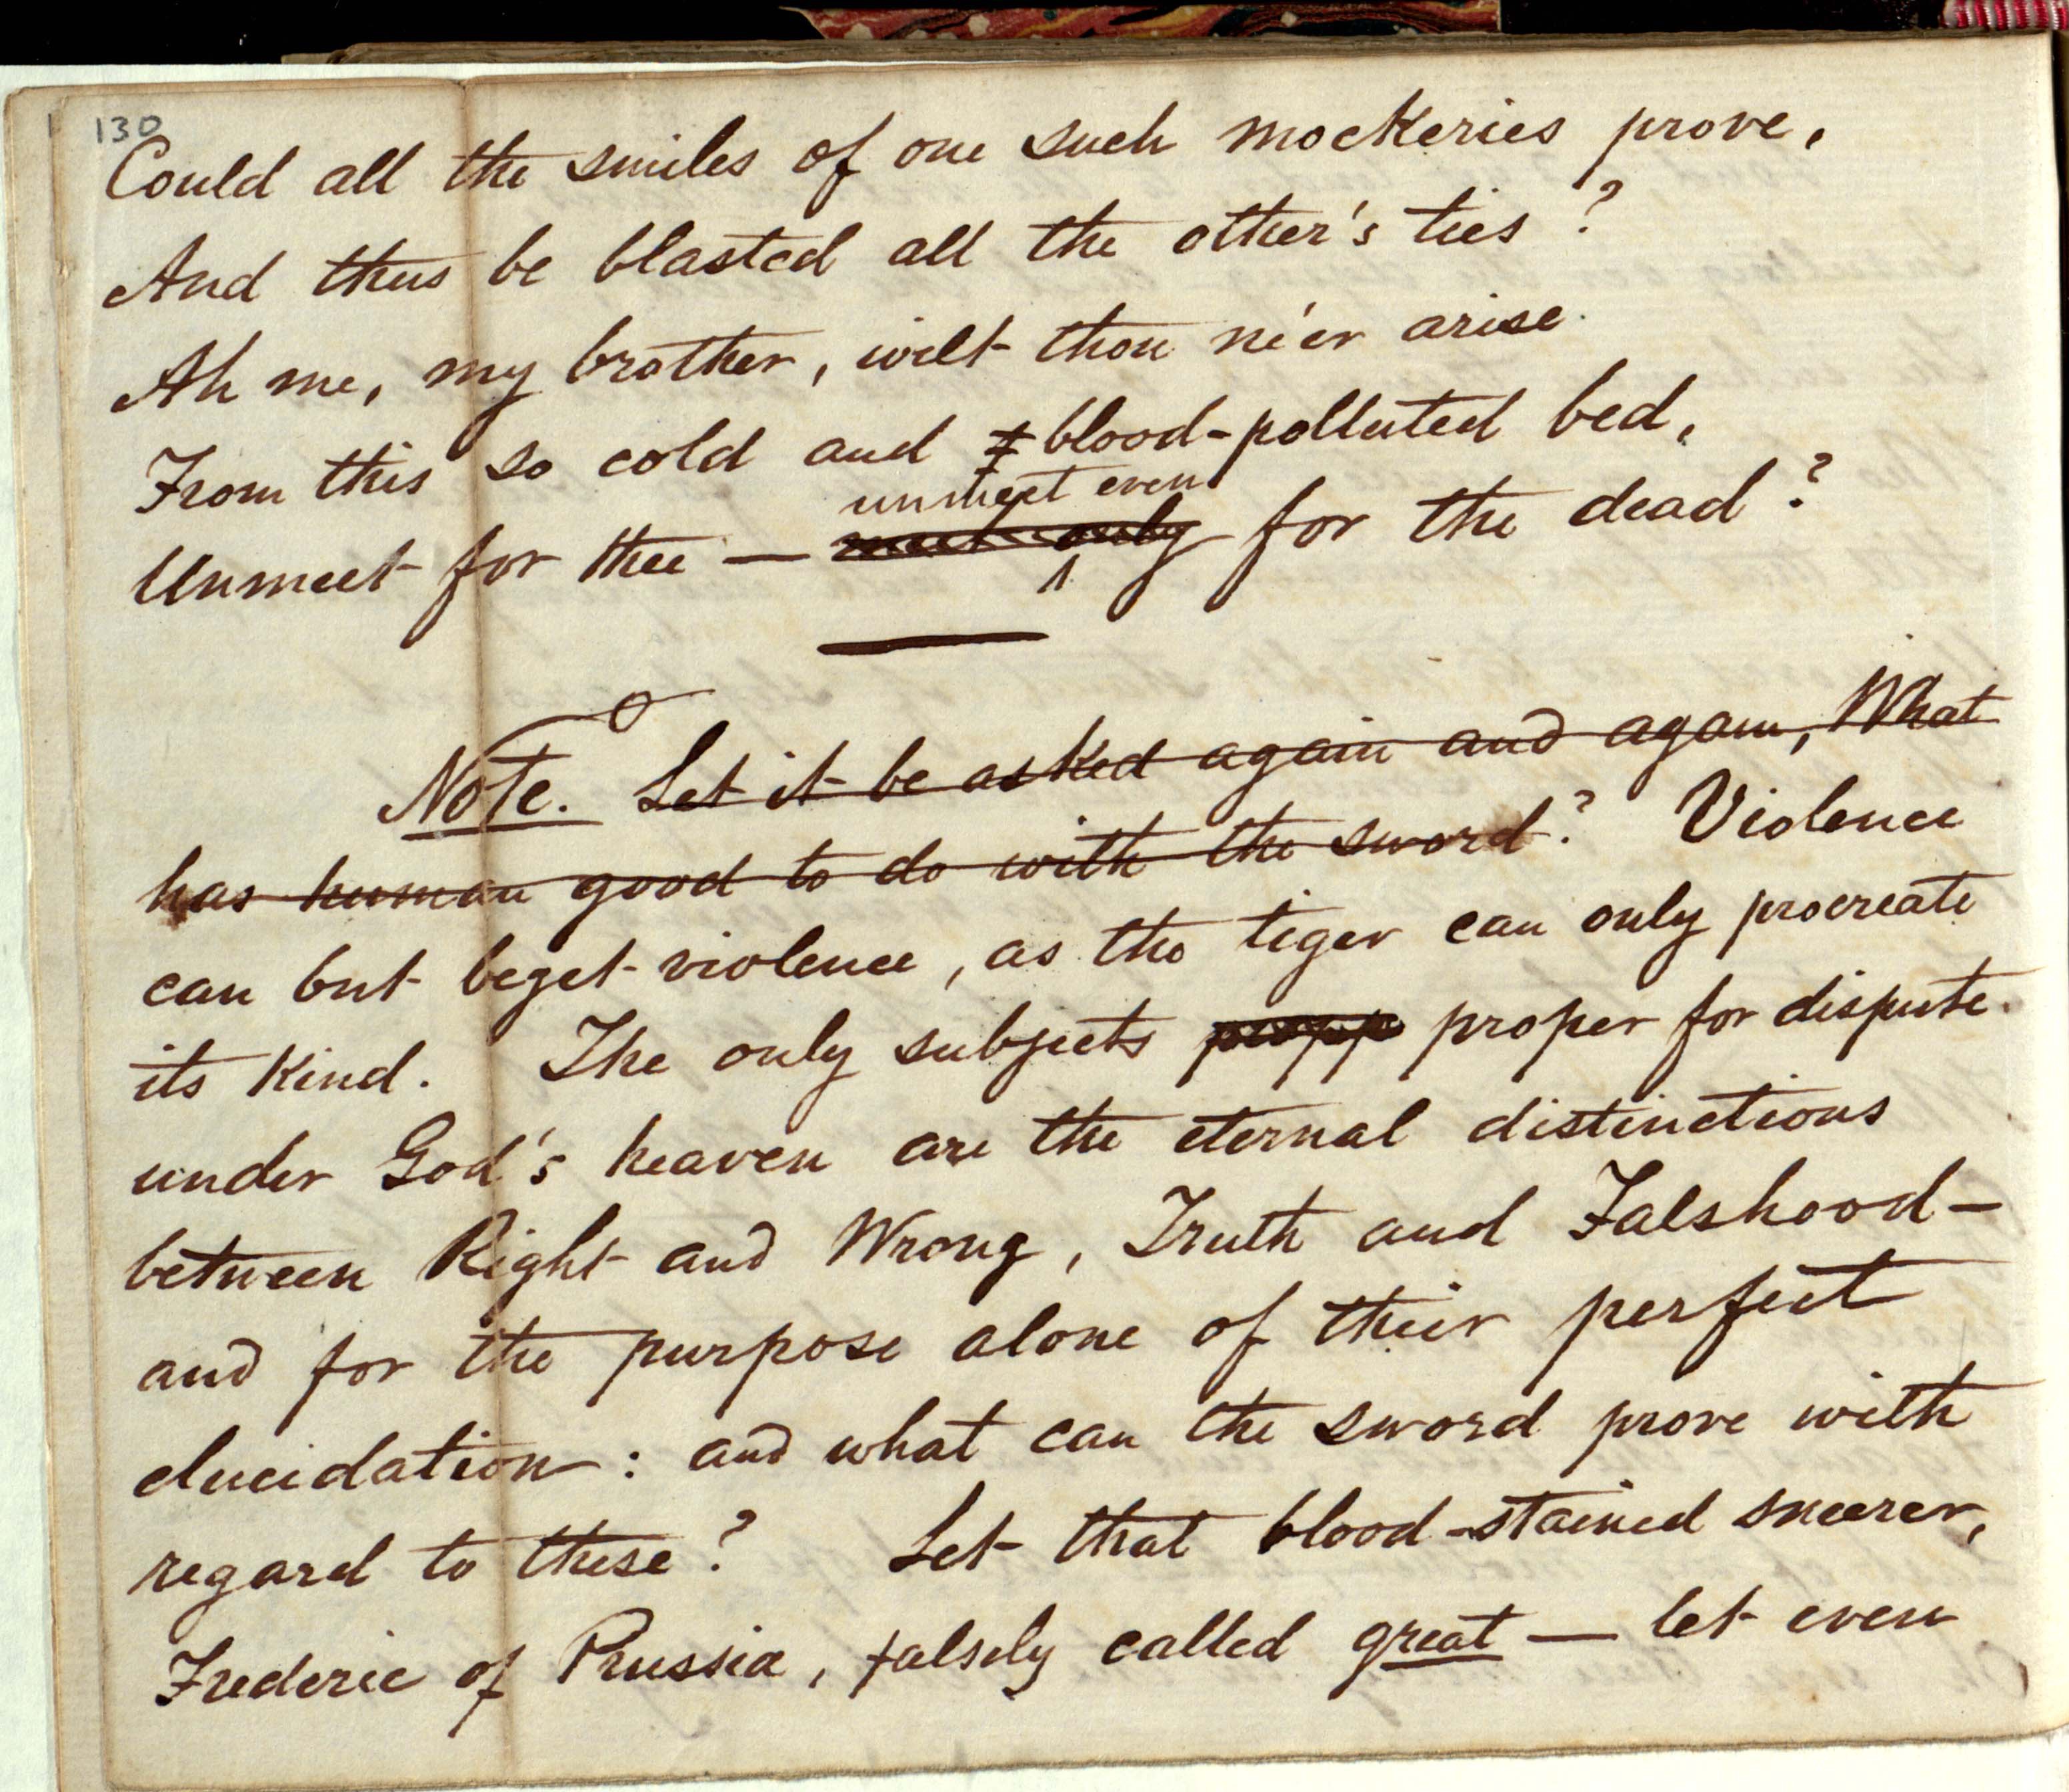 130
Could all the smiles of one such mockeries prove,
And thus be blasted all the other's ties?
Ah me, my brother, wilt thou ne'er arise
From this so cold and blood-polluted bed,
unmeet even
Unmeet for thee — meet only for the dead?
Note. Let it be asked again and again, What
has human good to do with the sword? Violence
can but beget violence, as the tiger can only procreate
its kind. The only subjects propp proper for dispute
under God's heaven are the eternal distinctions
between Right and Wrong, Truth and Falshood—
and for the purpose alone of their perfect
elucidation: and what can the sword prove with
regard to these? Let that blood-stained sneerer,
Frederic of Prussia, falsely called great — let even